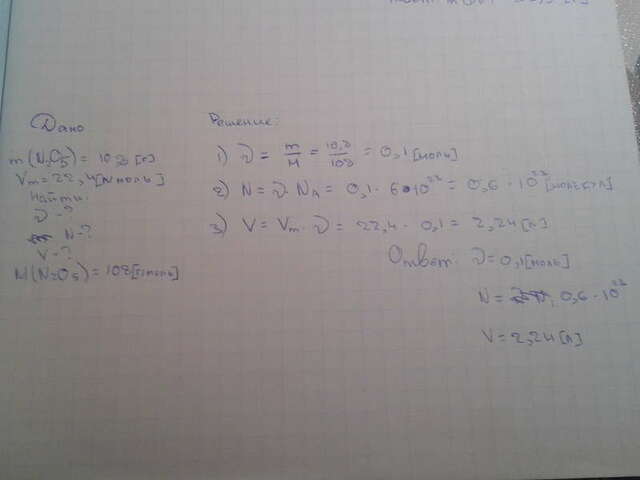 Дано
m(N₂O₅) = 10,8 [г]
Vm = 22,4 [л/моль]
Найти:
ν-?
N-?
V-?
M(N₂O₅) = 108 [г/моль]
Решение:
1) ν = m/M = 10,8/108 = 0,1 [моль]
2) N = ν · NA = 0,1 · 6 · 10²³ = 0,6 · 10²³ [молекул]
3) V = Vm · ν = 22,4 · 0,1 = 2,24 [л]
Ответ: ν = 0,1 [моль]
N = 0,6 · 10²³
V = 2,24 [л]